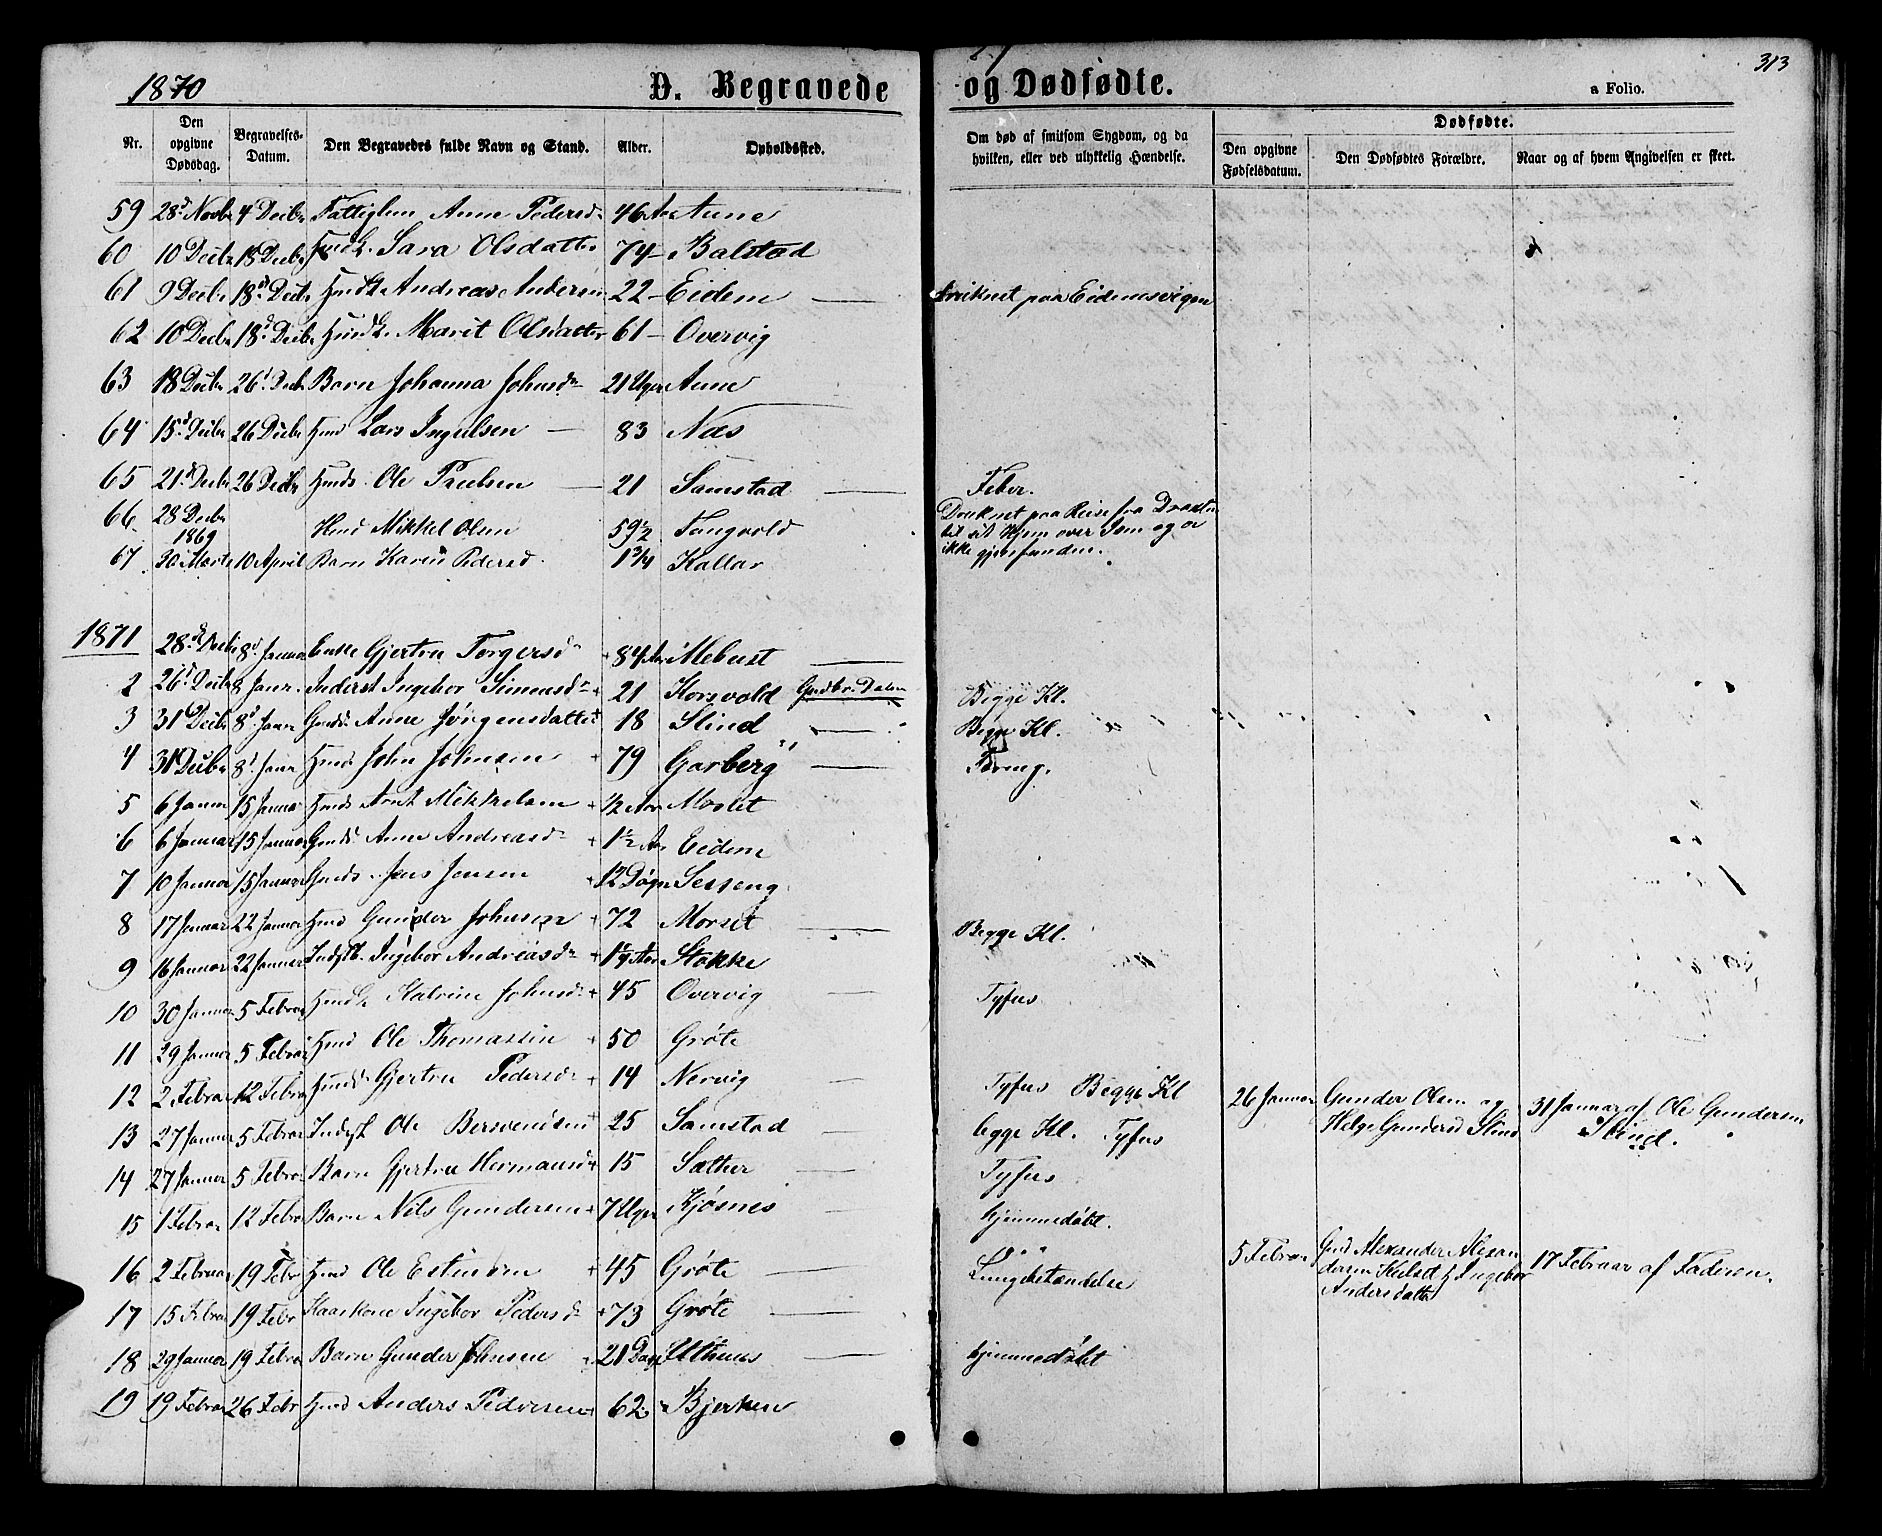 1870 D. Begravede og Dødfødte. 313
a Folio.
Nr. Den opgivne Dødsdag. Begravelses-Datum. Den Begravedes fulde Navn og Stand. Alder. Opholdssted. Om død af smitsom Sygdom, og da hvilken, eller ved ulykkelig Hændelse. Dødfødte.
Den opgivne Fødselsdatum. Den Dødfødtes Forældre. Naar og af hvem Angivelsen er skeet.
59 28d Novbr 4 Decbr Fattiglem Anne Pedersd 46 Aar Aune
60 10 Decbr 18 Decbr Sara Olsdatter 74 - Balstad
61 9 Decbr 18d Decbr Andreas Andersen 22 - Eidem druknet paa Eidemsvigen
62 10 Decbr 18d Decbr Marit Olsdatter 61 - Overvig
63 18 Decbr 26d Decbr Barn Johanna Johnsdr 21 Uger Aune
64 15d Decbr 26 Decbr Hmd Lars Ingulsen 83 Næs
65 21d Decbr 26 Decbr Hmds Ole Paulsen 21 Samstad Feber.
66 28 Decbr 1869 Hmd Mikkel Olsen 59 1/2 Fangvold Druknet paa Reise fra
til sit Hjem over Søen og er
ikke gjenfunden.
67 30 Marts 10 April Barn Karen Pedersd. 1 3/4 Kallar
1871 28d Decbr 8d Januar Enke Gjertru Torgersd 84 Aar Mebust
2 26d Decbr 8 Janr. Inderst Ingebor Simensdr 21 Korsvold Begge Kl.
3 31 Decbr 8d Janr Gmdd Anne Jørgensdatter 18 Slind Begge Kl.
4 31 Decbr 8d Janr Hmd John Johnsen 79 Garberg Tæring.
5 6 Januar 15 Januar Hmds Arnt Mikkelsen 1/2 Aar Moslet
6 6 Januar 15 Januar Gmdd Anne Andreasdr 1 1/2 Aar Eidem
7 10 Januar 15 Januar Gmds Jens Jensen 12 Døgn Sesseng
8 17 Januar 22 Januar Hmd Gunder Johnsen 72 Morset Begge Kl.
9 16 Januar 22 Januar Ingebor Andreasdr 1 1/4 Aar Stokke
10 30 Januar 5 Februar Katrine Johnsdr 45 Overvig Tyfus
11 29 Januar 5 Februar Hmd Ole Thomassen 50 Grøte
12 2 Februar 12 Februar Hmdd Gjertru Pedersdr 14 Nervig Tyfus Begge Kl
13 27 Januar 5 Februar Indst Ole Bersvendsen 25 Samstad begge Kl. Tyfus 26 Januar Gunder Olsen og
Helge Gundersd Slind 31 Januar af Ole Gundersen
Slind.
14 27 Januar 5 Februar Barn Gjertru Hermansdr 15 Sæther Tyfus
15 1 Februar 12 Febr Barn Nils Gundersen 7 Uger Kjøsnes hjemmedøbt.
16 2 Februar 19 Febr Hmd Ole Estensen 45 Grøte Lungebetændelse 5 Februar Gmd Alexander Alexan
dersen Kelset & Ingebor
Andersdatter 17 Februar af Faderen.
17 15 Februar 19 Febr Kaarkone Ingebor Pedersdr 73 Grøte
18 29 Januar 19 Febr Barn Gunder Johnsen 21 Dage Uthuus hjemmedøbt
19 19 Februar 26 Febr Hmd Anders Pedersen 62 Bjerken